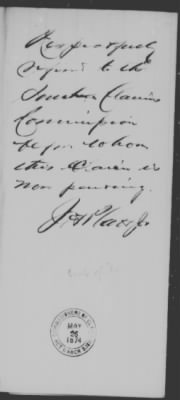 Respectfully
report to the
Southern Claims
Commission
before whom
this Claim is
now pending.
MAY
26
1874